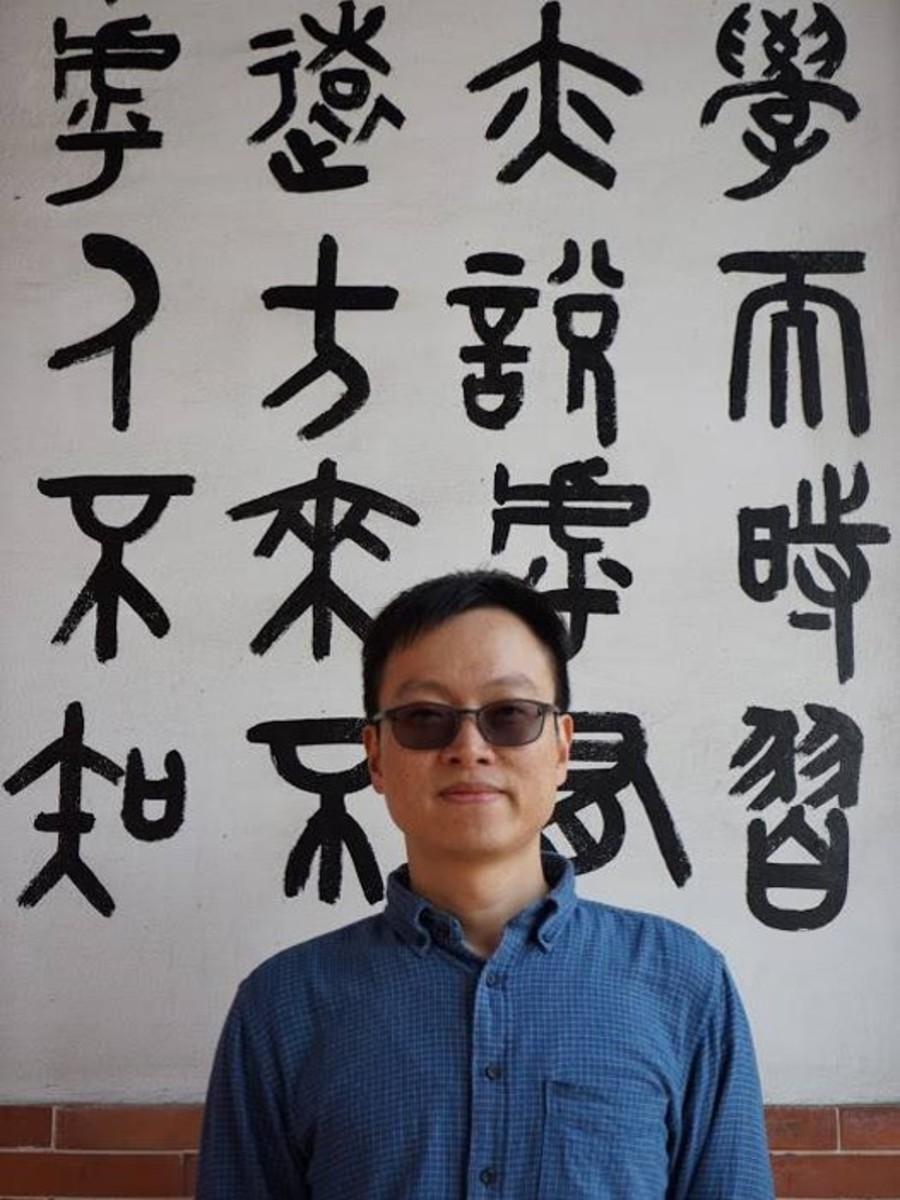 學而時習
亦說虖有
遠方來不
虖人不知